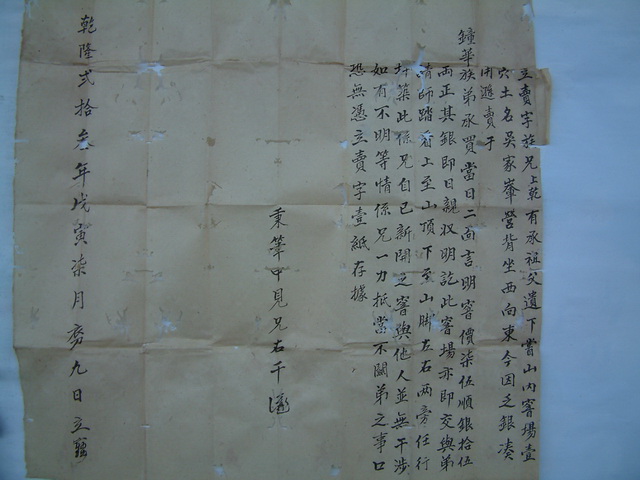 立賣字族兄上乾有承祖父遺下嘗山內窨場壹
穴土名吳家崠營背坐西向東今因乏銀湊
用遜賣于
鐘華族弟承買當日二面言明窨價柒伍順銀拾伍
両正其銀即日親収明訖此窨場亦即交與弟
請師踏看上至山頂下至山脚左右两旁任行
圩築此係兄自己新開之窨與他人並無干涉
如有不明等情係兄一力抵當不關弟之事口
恐無憑立賣字壹紙存據
秉筆中見兄右干
乾隆弍拾叁年戊寅柒月初九日立